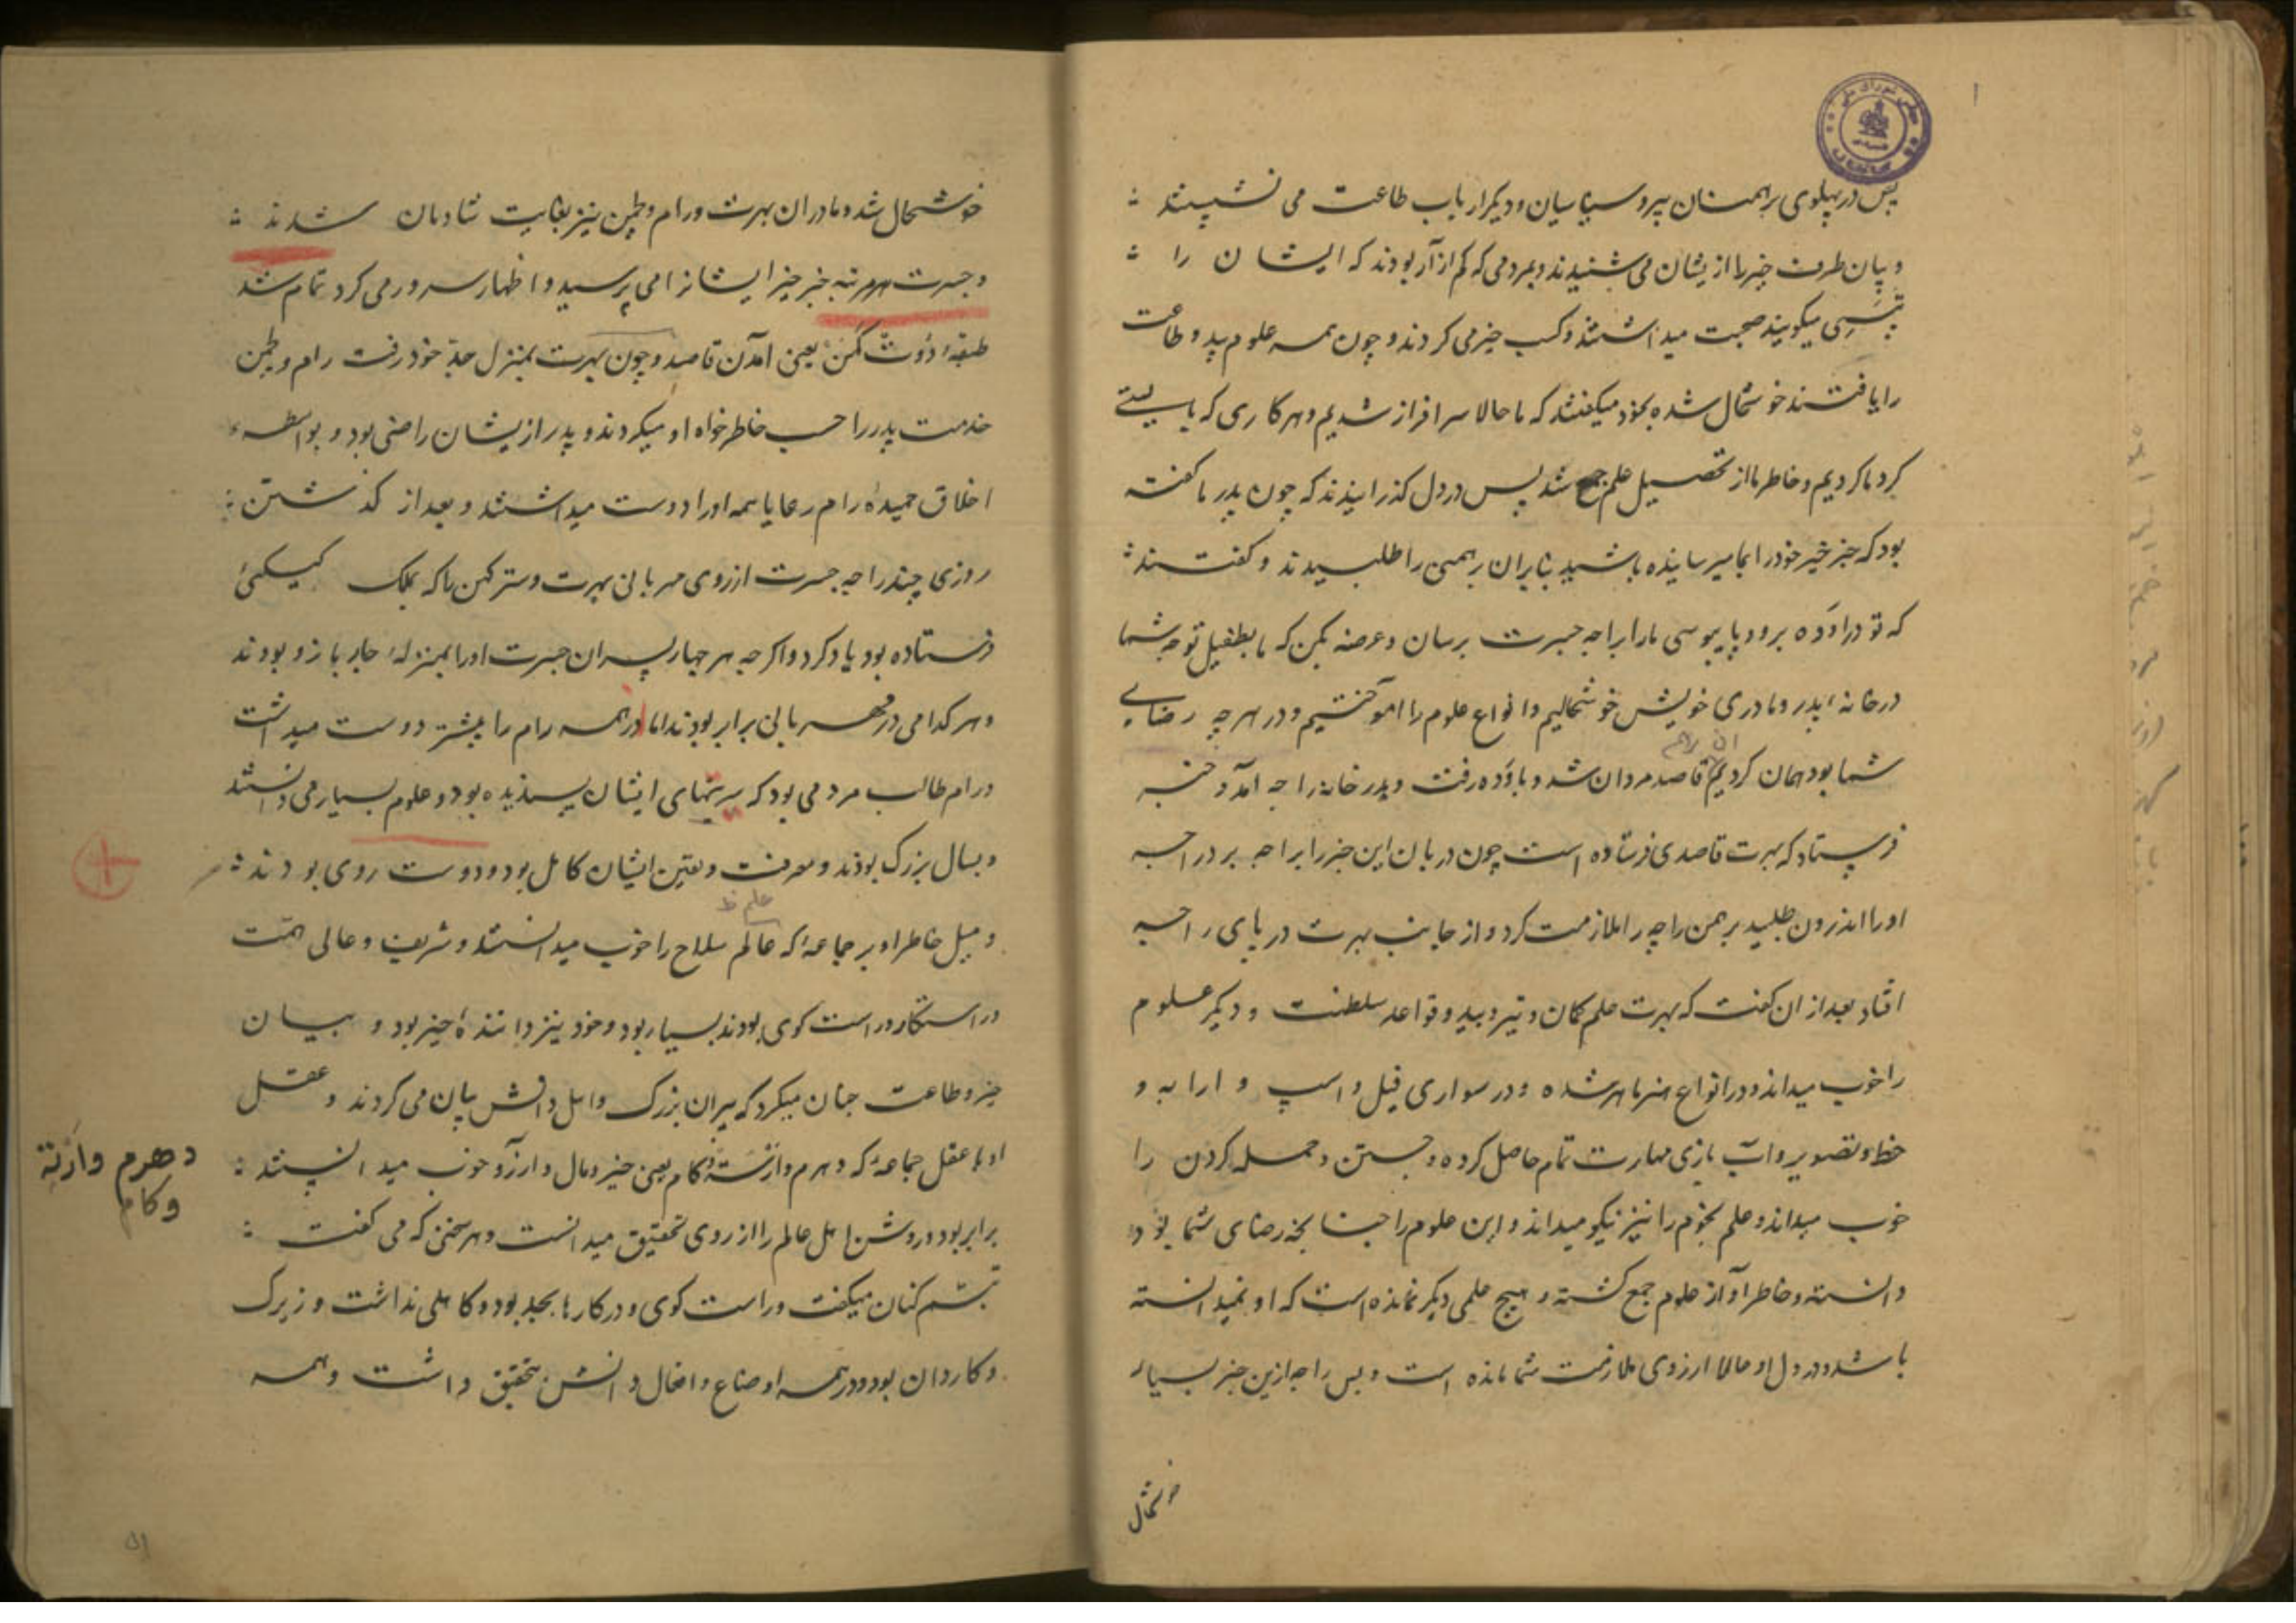 پس در پهلوی برهمنان پیر و سنیاسیان و دیگر ارباب طاعت می نشستند
و بیان طرف خبر را ازیشان می شنیدند و بمردمی که کم ازار بودند که ایشان را
تپسی میگویند صحبت میداشتند و کسب خیر می کردند و چون همه علوم بید و طاعت
را یافتند خوشحال شده بخود میگفتند که ما حالا سرافراز شدیم و هر کاری که بایستی
کرد ما کردیم و خاطر ما از تحصیل علم جمع شد پس در دل گذرانیدند که چون پدر ما گفته
بود که خبر خیر خود را بما میرسانیده باشید بنابران برهمنی را طلبیدند و گفتند
که تو در اوده برو و پایبوسی ما را براجه جسرت برسان و عرضه بکن که ما بطفیل توجه شما
در خانه پدر و مادری خویش خوشحالیم و انواع علوم را آموختیم و در هر چه رضای
شما بود همان کردیم قاصد روان شد و باوده رفت و بدر خانه راجه آمد و خبر
فرستاد که بهرت قاصدی فرستاده است چون دربان این خبر را براجه برد راجه
او را اندرون طلبید برهمن راجه را ملازمت کرد و از جانب بهرت در پای راجه
افتاد بعد ازان گفت که بهرت علم کمان و تیر و بید و قواعد سلطنت و دیگر علوم
را خوب میداند و در انواع هنر ماهر شده و در سواری فیل و اسپ و ارابه و
خط و تصویر و آب بازی مهارت تمام حاصل کرده و جستن و حمله کردن را
خوب میداند و علم نجوم را نیز نیکو میداند و این علوم را چنانچه رضای شما بود
دانسته و خاطر او از علوم جمع گشته و هیچ علمی دیگر نمانده است که او نمیدانسته
باشد و در دل او حالا ارزوی ملازمت شما مانده است و بس راجه ازین خبر بسیار
خوشحال
خوشحال شد و مادران بهرت و رام و لچمن نیز بغایت شادمان شدند
و جسرت هر مرتبه خبر خیر ایشانرا می پرسید و اظهار سرور می کرد تمام شد
طبقه دوت گمن یعنی آمدن قاصد و چون بهرت بمنزل جد خود رفت رام و لچمن
خدمت پدر را حسب خاطر خواه او میکردند و پدر ازیشان راضی بود و بواسطه
اخلاق حمیده رام رعایا همه او را دوست میداشتند و بعد از گذشتن
روزی چند راجه جسرت از روی مهربانی بهرت و سترکهن را که بملک کیکئی
فرستاده بود یاد کرد و اگرچه هر چهار پسران جسرت او را بمنزله چار بازو بودند
و هر کدامی در مهربانی برابر بودند اما از همه رام را بیشتر دوست میداشت
و رام طالب مردمی بود که سرتهای ایشان پسندیده بود و علوم بسیار می دانستند
و بسال بزرگ بودند و معرفت و یقین ایشان کامل بود و دوست روی بودند
علم ظ
و میل خاطر او بر جماعه که عالم سلاح را خوب میدانستند و شریف و عالی همت
و راستکار و راست گوی بودند بسیار بود و خود نیز داننده خیر بود و بیان
خیر و طاعت چنان میکرد که پیران بزرگ و اهل دانش بیان می کردند و عقل
او با عقل جماعه که دهرم و ارتهه و کام یعنی خیر و مال و ارزو خوب میدانستند
دهرم وارتة
وكام
برابر بود و روش اهل عالم را از روی تحقیق میدانست و هر سخنی که می گفت
تبسم کنان میگفت و راست گوی و در کارها بجد بود و کاهلی نداشت و زیرک
و کاردان بود و در همه اوضاع و افعال و دانش تحقیق داشت و همه
۵۱